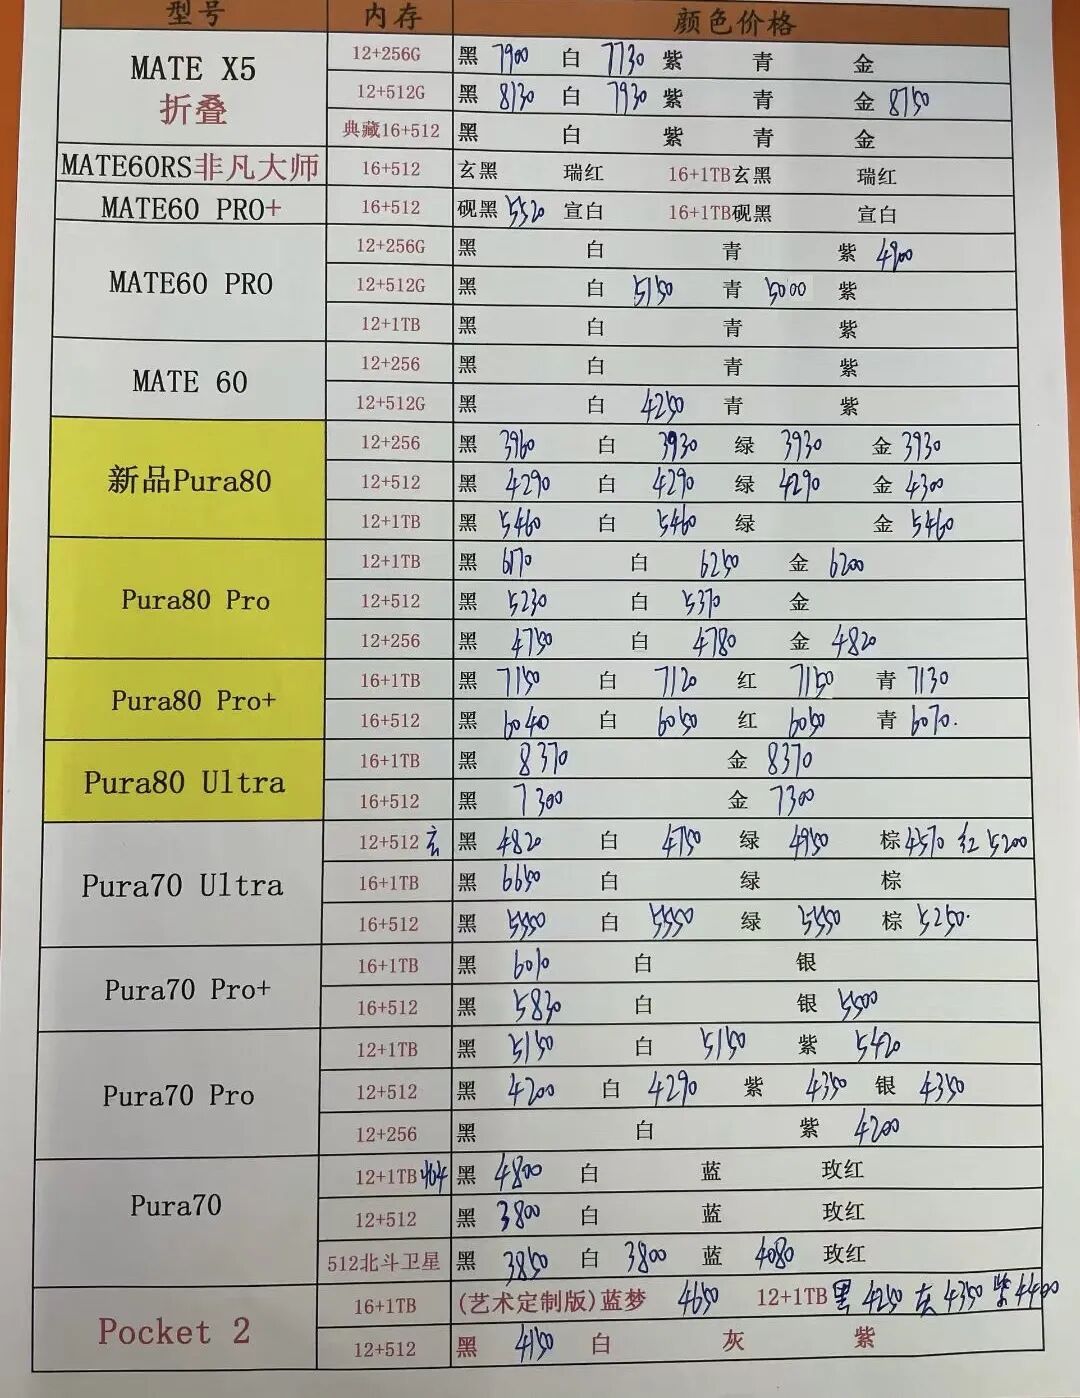 型号 内存 颜色价格
MATE X5 折叠 12+256G 黑 7900 白 7730 紫 青 金
12+512G 黑 8130 白 7930 紫 青 金 8750
典藏16+512 黑 白 紫 青 金
MATE60RS非凡大师 16+512 玄黑 瑞红 16+1TB玄黑 瑞红
MATE60 PRO+ 16+512 砚黑 5520 宣白 16+1TB砚黑 宣白
MATE60 PRO 12+256G 黑 白 青 紫 4900
12+512G 黑 白 5150 青 5000 紫
12+1TB 黑 白 青 紫
MATE 60 12+256 黑 白 青 紫
12+512G 黑 白 4250 青 紫
新品Pura80 12+256 黑 3960 白 3930 绿 3930 金 3930
12+512 黑 4290 白 4290 绿 4290 金 4300
12+1TB 黑 5460 白 5460 绿 金 5460
Pura80 Pro 12+1TB 黑 6170 白 6250 金 6200
12+512 黑 5230 白 5370 金
12+256 黑 4750 白 4780 金 4820
Pura80 Pro+ 16+1TB 黑 7150 白 7120 红 7150 青 7130
16+512 黑 6040 白 6050 红 6050 青 6070.
Pura80 Ultra 16+1TB 黑 8370 金 8370
16+512 黑 7300 金 7300
Pura70 Ultra 12+512 玄 黑 4820 白 4750 绿 4950 棕 4570 红 5200
16+1TB 黑 6650 白 绿 棕
16+512 黑 5550 白 5550 绿 5550 棕 5250.
Pura70 Pro+ 16+1TB 黑 6010 白 银
16+512 黑 5830 白 银 5500
Pura70 Pro 12+1TB 黑 5150 白 5150 紫 5420
12+512 黑 4200 白 4290 紫 4350 银 4350
12+256 黑 白 紫 4200
Pura70 12+1TB 黑 4800 白 蓝 玫红
12+512 黑 3800 白 蓝 玫红
512北斗卫星 黑 3850 白 3800 蓝 4080 玫红
Pocket 2 16+1TB (艺术定制版)蓝梦 4650 12+1TB 黑 4250 灰 4350 紫 4400
12+512 黑 4150 白 灰 紫